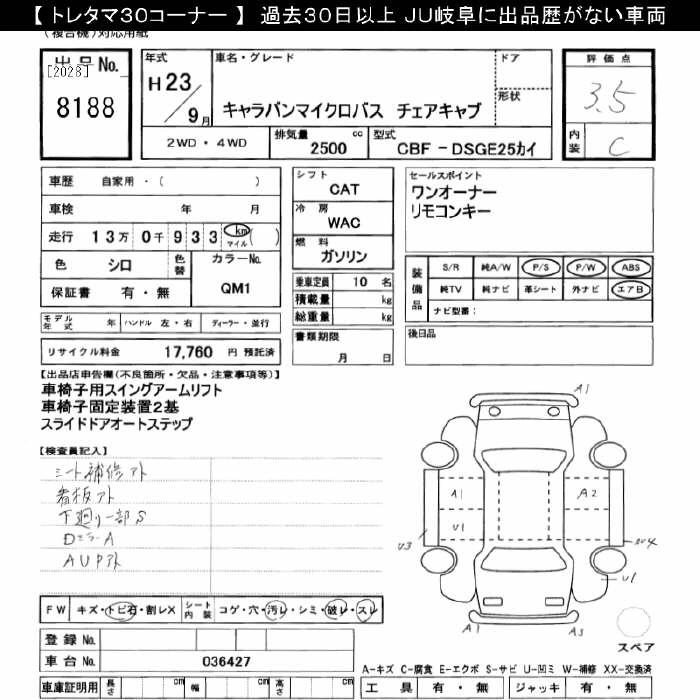 【 トレタマ30コーナー 】 過去30日以上 JU岐阜に出品歴がない車両
(複合機)対応用紙
出品 No.
[2028]
8188
年式
H 23 / 9 月
車名・グレード
キャラバンマイクロバス チェアキャブ
ドア
形状
評価点
3.5
内装 C
2WD ・ 4WD
排気量 cc
2500
型式
CBF - DSGE25カイ
車歴 自家用・( )
車検 年 月
走行 13万 0千 9 3 3 km マイル ( )
色 シロ 色替 カラーNo.
QM1
保証書 有 ・ 無
シフト
CAT
冷房
WAC
燃料
ガソリン
乗車定員 10 名
積載量 kg
総重量 kg
書類期限
月 日
セールスポイント
ワンオーナー
リモコンキー
装備品
S/R 純A/W P/S P/W ABS
純TV 純ナビ 革シート 外ナビ エアB
ナビ型番:
後日品
モデル年式 年 ハンドル 左・右 ディーラー・並行
リサイクル料金 17,760 円 預託済
【出品店申告欄(不良箇所・欠品・注意事項等)】
車椅子用スイングアームリフト
車椅子固定装置2基
スライドドアオートステップ
【検査員記入】
シート補修アト
看板アト
下廻り一部S
DミラーA
AUPアト
A1
A1
A2
U1
U3
U1
A1
A3
スペア
FW キズ・トビ石・割レX シート内装 コゲ・穴・汚レ・シミ・破レ・スレ
登録 No.
車台 No. 036427
車庫証明用 長さ cm 幅 cm 高さ cm
A-キズ C-腐食 E-エクボ S-サビ U-凹ミ W-補修 XX-交換済
工具 有 ・ 無 ジャッキ 有 ・ 無